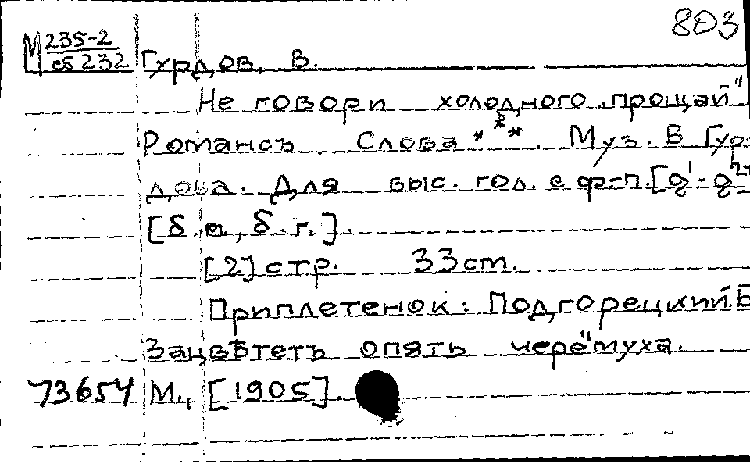 803
М 235-2
сб 232
Гурдов, В.
Не говори холодного „прощай"
Романсъ Слова ***. Муз. В Гур-
дова. Для выс. гол. с ф-п. [g'-g²]
[б.м., б.г.]
[2] стр. 33 cm.
Приплетенок: Подгорецкий Б
Зацвѣтетъ опять черёмуха.
73654 М., [1905].